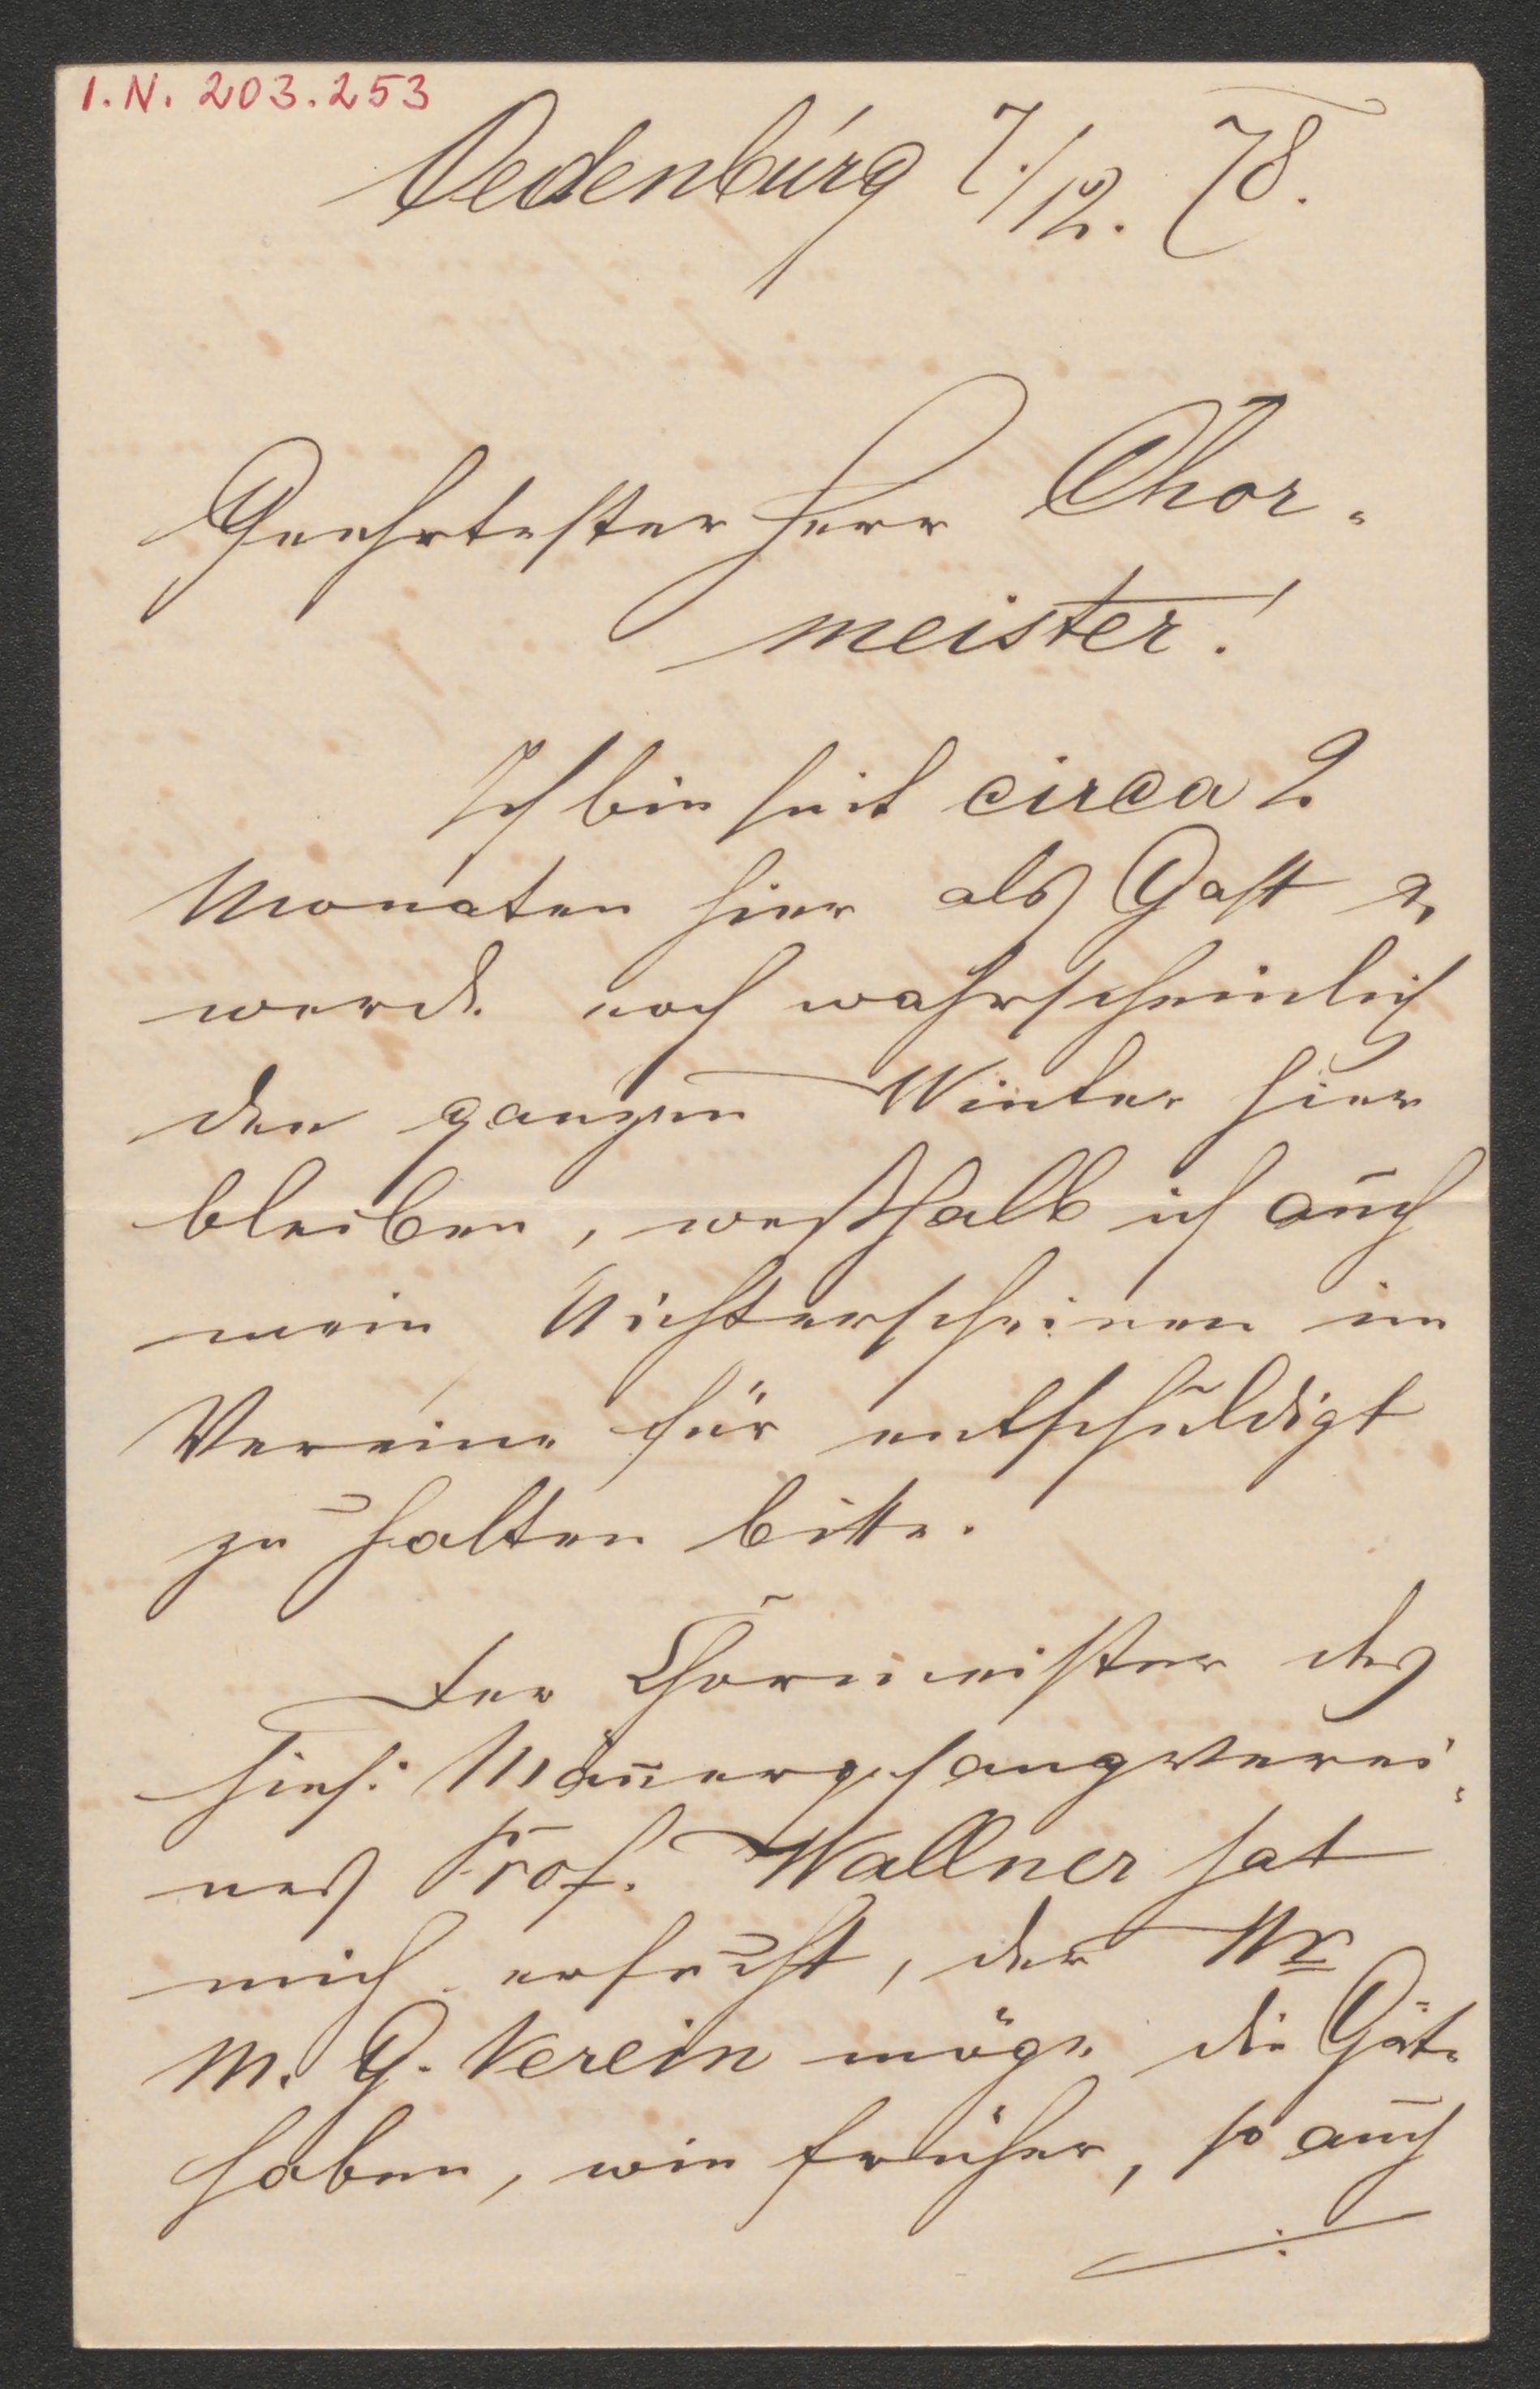 I.N. 203.253
Oedenburg 7./12. 78.
Geehrtester Herr Chor-
meister!
Ich bin seit circa 2
Monaten hier als Gast u.
werde noch wahrscheinlich
den ganzen Winter hier
bleiben, weßhalb ich auch
mein Nichterscheinen im
Vereine für entschuldigt
zu halten bitte.
Der Chormeister des
hies. Mañergesangverei-
nes Prof. Wallner hat
mich ersucht, der Wr
M. G. Verein möge die Güte
haben, wie früher, so auch